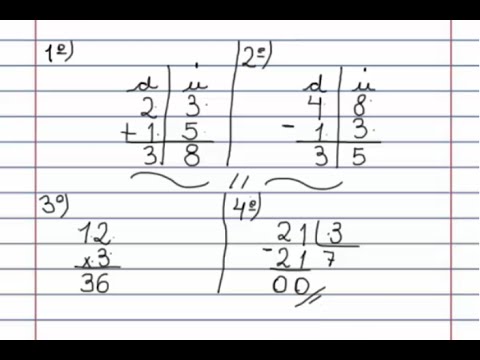 1º)
d | u
2 | 3
+ 1 | 5
3 | 8
2º)
d | u
4 | 8
- 1 | 3
3 | 5
3º)
12
x 3
36
4º)
21 | 3
- 21 7
00